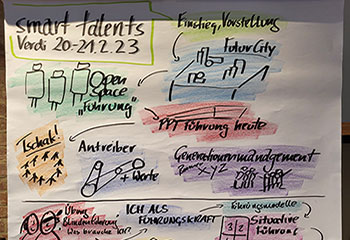 smart talents
Verdi 20-21.2.23
Einstieg, Vorstellung
Futur City
Open
Space
"Führung"
PPT Führung heute
Tschak!
Antreiber
+ Worte
Generationenmanagement
XYZ
Übung
Blindenführung
Was brauche ich?
ICH ALS
FÜHRUNGSKRAFT
Führungsmodelle
Situative
Führung
3 2